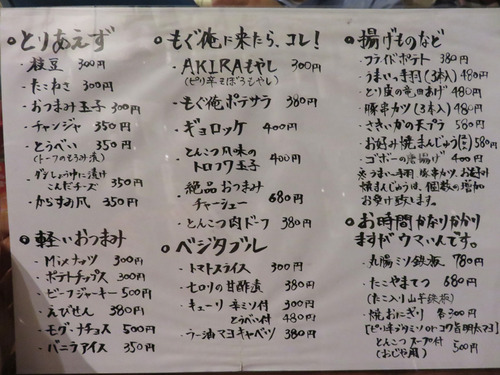 とりあえず
・枝豆 300円
・たこわさ 300円
・おつまみ玉子 300円
・チャンジャ 350円
・とうべい 350円
(トーフのもろみ漬)
・ダシしょうゆに漬け
こんだチーズ 350円
・からすみ風 350円
軽いおつまみ
・Mixナッツ 300円
・ポテトチップス 300円
・ビーフジャーキー 500円
・えびせん 380円
・モグ・ナチョス 500円
・バニラアイス 350円
もぐ俺に来たら、コレ!
・AKIRAもやし 300円
(ピリ辛そぼろもやし)
・もぐ俺ポテサラ 380円
・ギョロッケ 400円
・とんこつ風味の
トロフワ玉子 400円
・絶品おつまみ
チャーシュー 680円
・とんこつ肉ドーフ 380円
ベジタブル
・トマトスライス 300円
・セロリの甘酢漬 380円
・キューリ 辛ミソ付 300円
とうべい付 480円
・ラー油マヨキャベツ 380円
揚げものなど
・フライドポテト 380円
・うまい手羽(3本入) 480円
・とり皮の竜田あげ 480円
・豚串カツ(3本入) 480円
・さきいかの天プラ 580円
・お好み焼まんじゅう 580円
・ゴボーの唐揚げ 400円
※うまい手羽、豚串カツ、お好み
焼まんじゅうは、個数の増加
お受け致します。
お時間かなりかかり
ますがウマいんです。
・丸腸ミソ鉄板 780円
・たこやまてつ 680円
(たこ入り山芋鉄板)
・焼おにぎり 各300円
とんこつスープ付
(おじや用) 500円